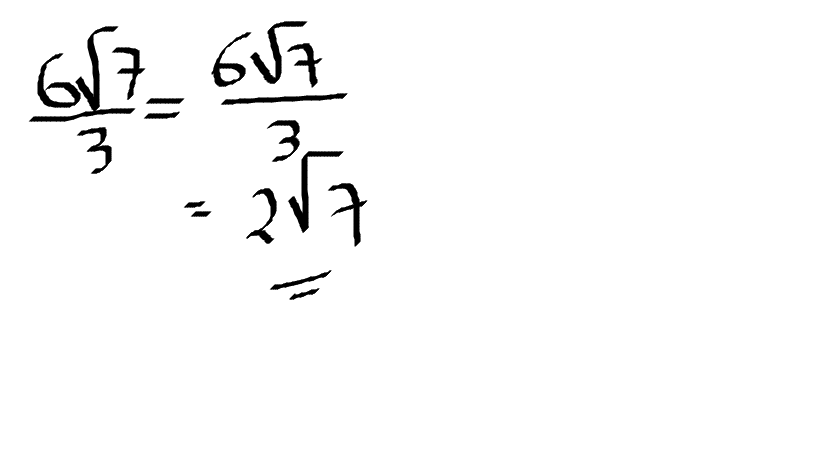 6√7/3 = 6√7/3
= 2√7